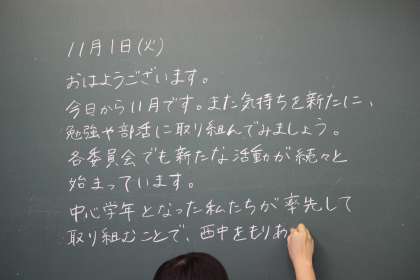 11月1日(火)
おはようございます。
今日から11月です。また気持ちを新たに、
勉強や部活に取り組んでみましょう。
各委員会でも新たな活動が続々と
始まっています。
中心学年となった私たちが率先して
取り組むことで、西中をもりあ